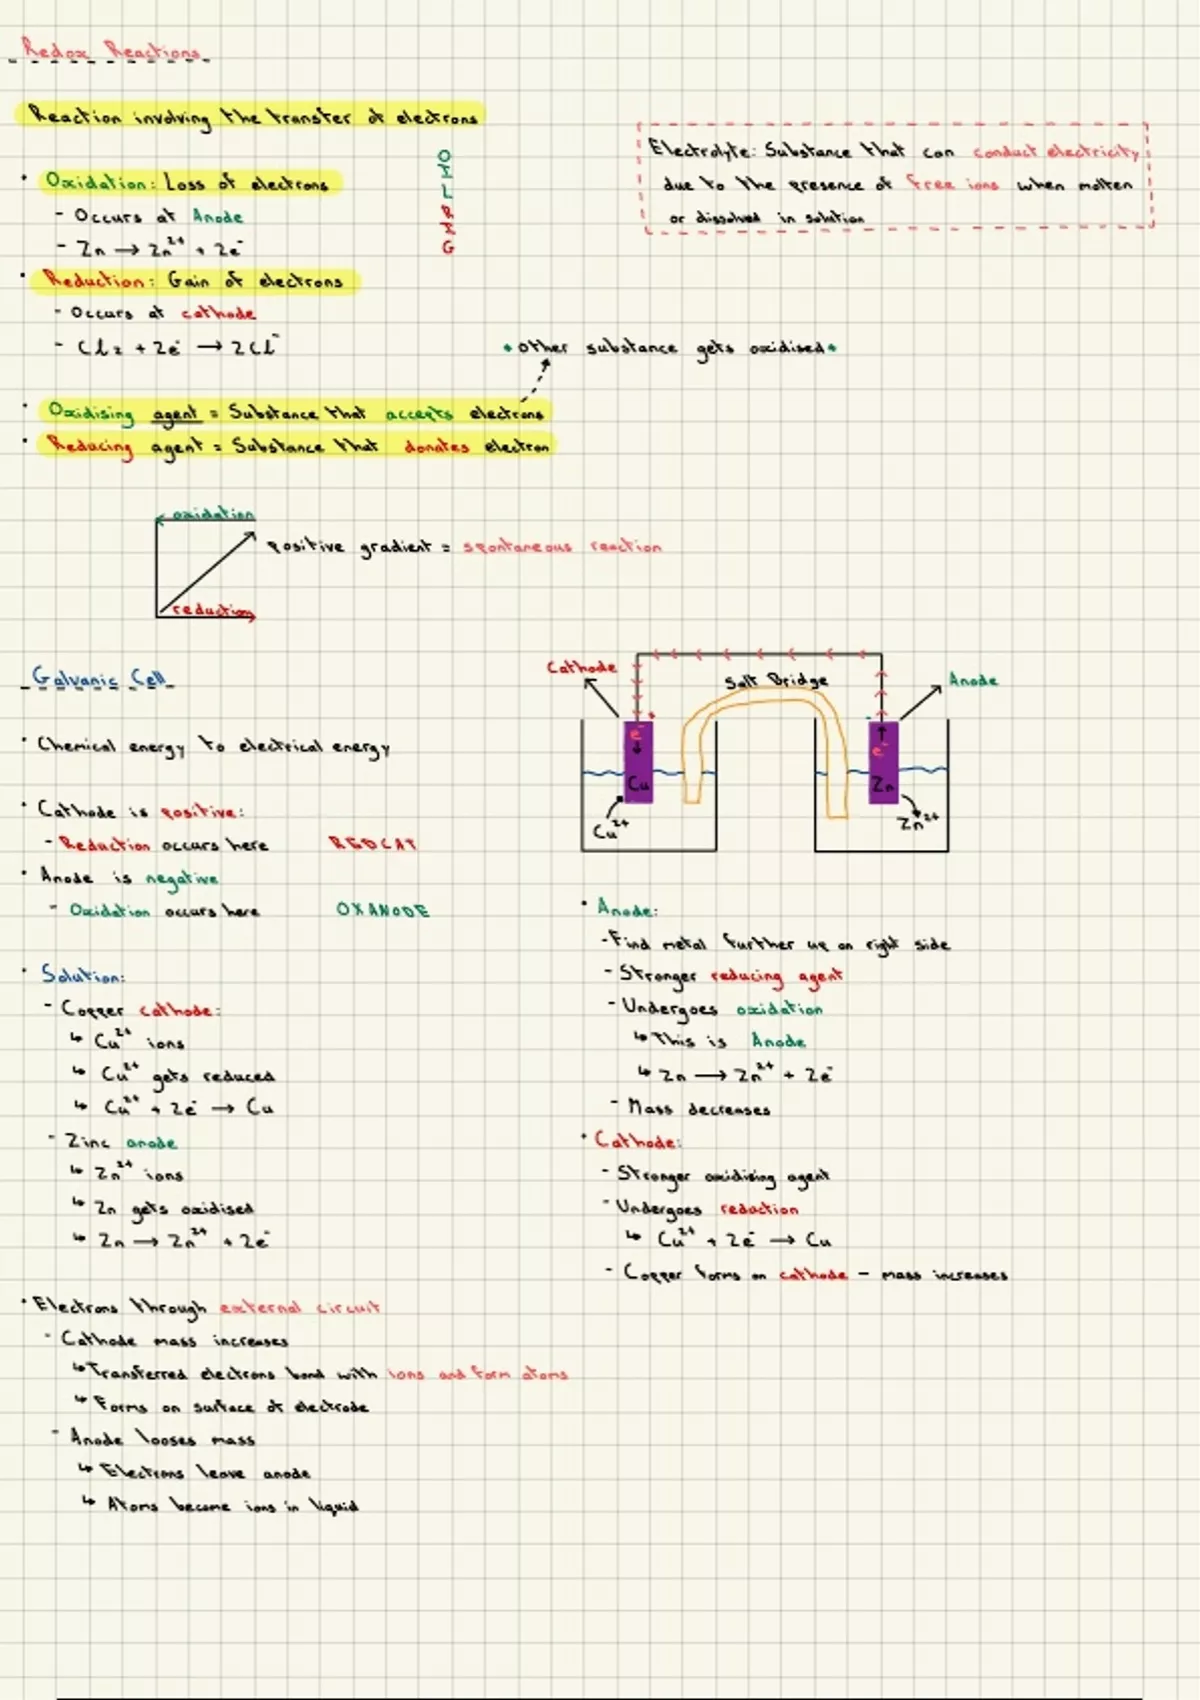 Redox Reactions
Reaction involving the transfer of electrons
Electrolyte: Substance that can conduct electricity
due to the presence of free ions when molten
or dissolved in solution
OIL RIG
• Oxidation: Loss of electrons
- Occurs at Anode
- Zn → Zn²⁺ + 2e⁻
• Reduction: Gain of electrons
- Occurs at cathode
- Cl₂ + 2e⁻ → 2Cl⁻
* other substance gets oxidised *
• Oxidising agent = Substance that accepts electrons
• Reducing agent = Substance that donates electron
oxidation
positive gradient = spontaneous reaction
reduction
Galvanic Cell
• Chemical energy to electrical energy
• Cathode is positive:
- Reduction occurs here REDCAT
• Anode is negative
- Oxidation occurs here OXANODE
• Solution:
- Copper cathode:
↳ Cu²⁺ ions
↳ Cu²⁺ gets reduced
↳ Cu²⁺ + 2e⁻ → Cu
- Zinc anode
↳ Zn²⁺ ions
↳ Zn gets oxidised
↳ Zn → Zn²⁺ + 2e⁻
• Electrons through external circuit
- Cathode mass increases
↳ Transferred electrons bond with ions and form atoms
↳ Forms on surface of electrode
- Anode looses mass
↳ Electrons leave anode
↳ Atoms become ions in liquid
Cathode
Salt Bridge
Anode
+
-
e⁻
e⁻
Cu
Zn
Cu²⁺
Zn²⁺
• Anode:
- Find metal further up on right side
- Stronger reducing agent
- Undergoes oxidation
↳ This is Anode
↳ Zn → Zn²⁺ + 2e⁻
- Mass decreases
• Cathode:
- Stronger oxidising agent
- Undergoes reduction
↳ Cu²⁺ + 2e⁻ → Cu
- Copper forms on cathode - mass increases